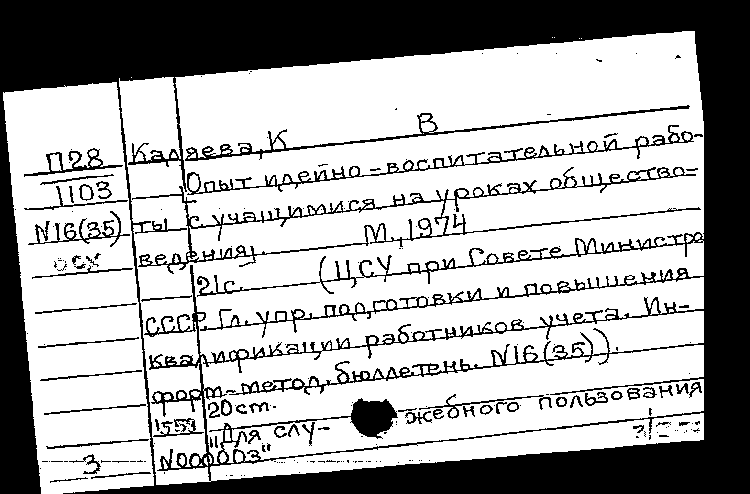 В
П28 Каляева, К
1103 [Опыт идейно-воспитательной рабо-
N16(35) ты с учащимися на уроках общество-
осх ведения]. М., 1974
21с. (ЦСУ при Совете Министро
СССР. Гл. упр. подготовки и повышения
квалификации работников учета. Ин-
форм-метод. бюллетень. N16(35)).
20см.
"Для слу- жебного пользования
N000003"
3